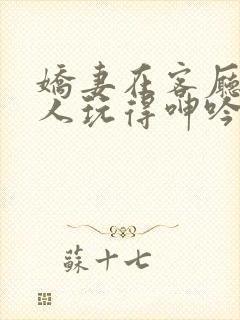 嬌妻在客廳
人玩得呻吟
蘇十七